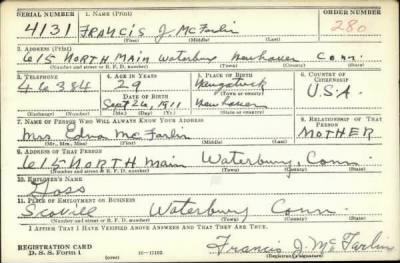 SERIAL NUMBER 1. NAME (Print) ORDER NUMBER
4131 FRANCIS J. McFarlin 280
(First) (Middle) (Last)
2. ADDRESS (Print)
615 NORTH MAIN Waterbury Newhaven Conn.
(Number and street or R. F. D. number) (Town) (County) (State)
3. TELEPHONE 4. AGE IN YEARS 5. PLACE OF BIRTH 6. COUNTRY OF CITIZENSHIP
46384 29 Naugatuck
DATE OF BIRTH (Town or county) U.S.A.
Sept 26, 1911 Newhaven
(Exchange) (Number) (Mo.) (Day) (Yr.) (State or country)
7. NAME OF PERSON WHO WILL ALWAYS KNOW YOUR ADDRESS 8. RELATIONSHIP OF THAT PERSON
Mrs. Edna McFarlin MOTHER
(Mr., Mrs., Miss) (First) (Middle) (Last)
9. ADDRESS OF THAT PERSON
615 NORTH Main Waterbury, Conn.
(Number and street or R. F. D. number) (Town) (County) (State)
10. EMPLOYER'S NAME
Goss
11. PLACE OF EMPLOYMENT OR BUSINESS
Scovill Waterbury Conn.
(Number and street or R. F. D. number) (Town) (County) (State)
I AFFIRM THAT I HAVE VERIFIED ABOVE ANSWERS AND THAT THEY ARE TRUE.
REGISTRATION CARD
D. S. S. Form 1 (over) 16—17105 Francis J. McFarlin
(Registrant's signature)